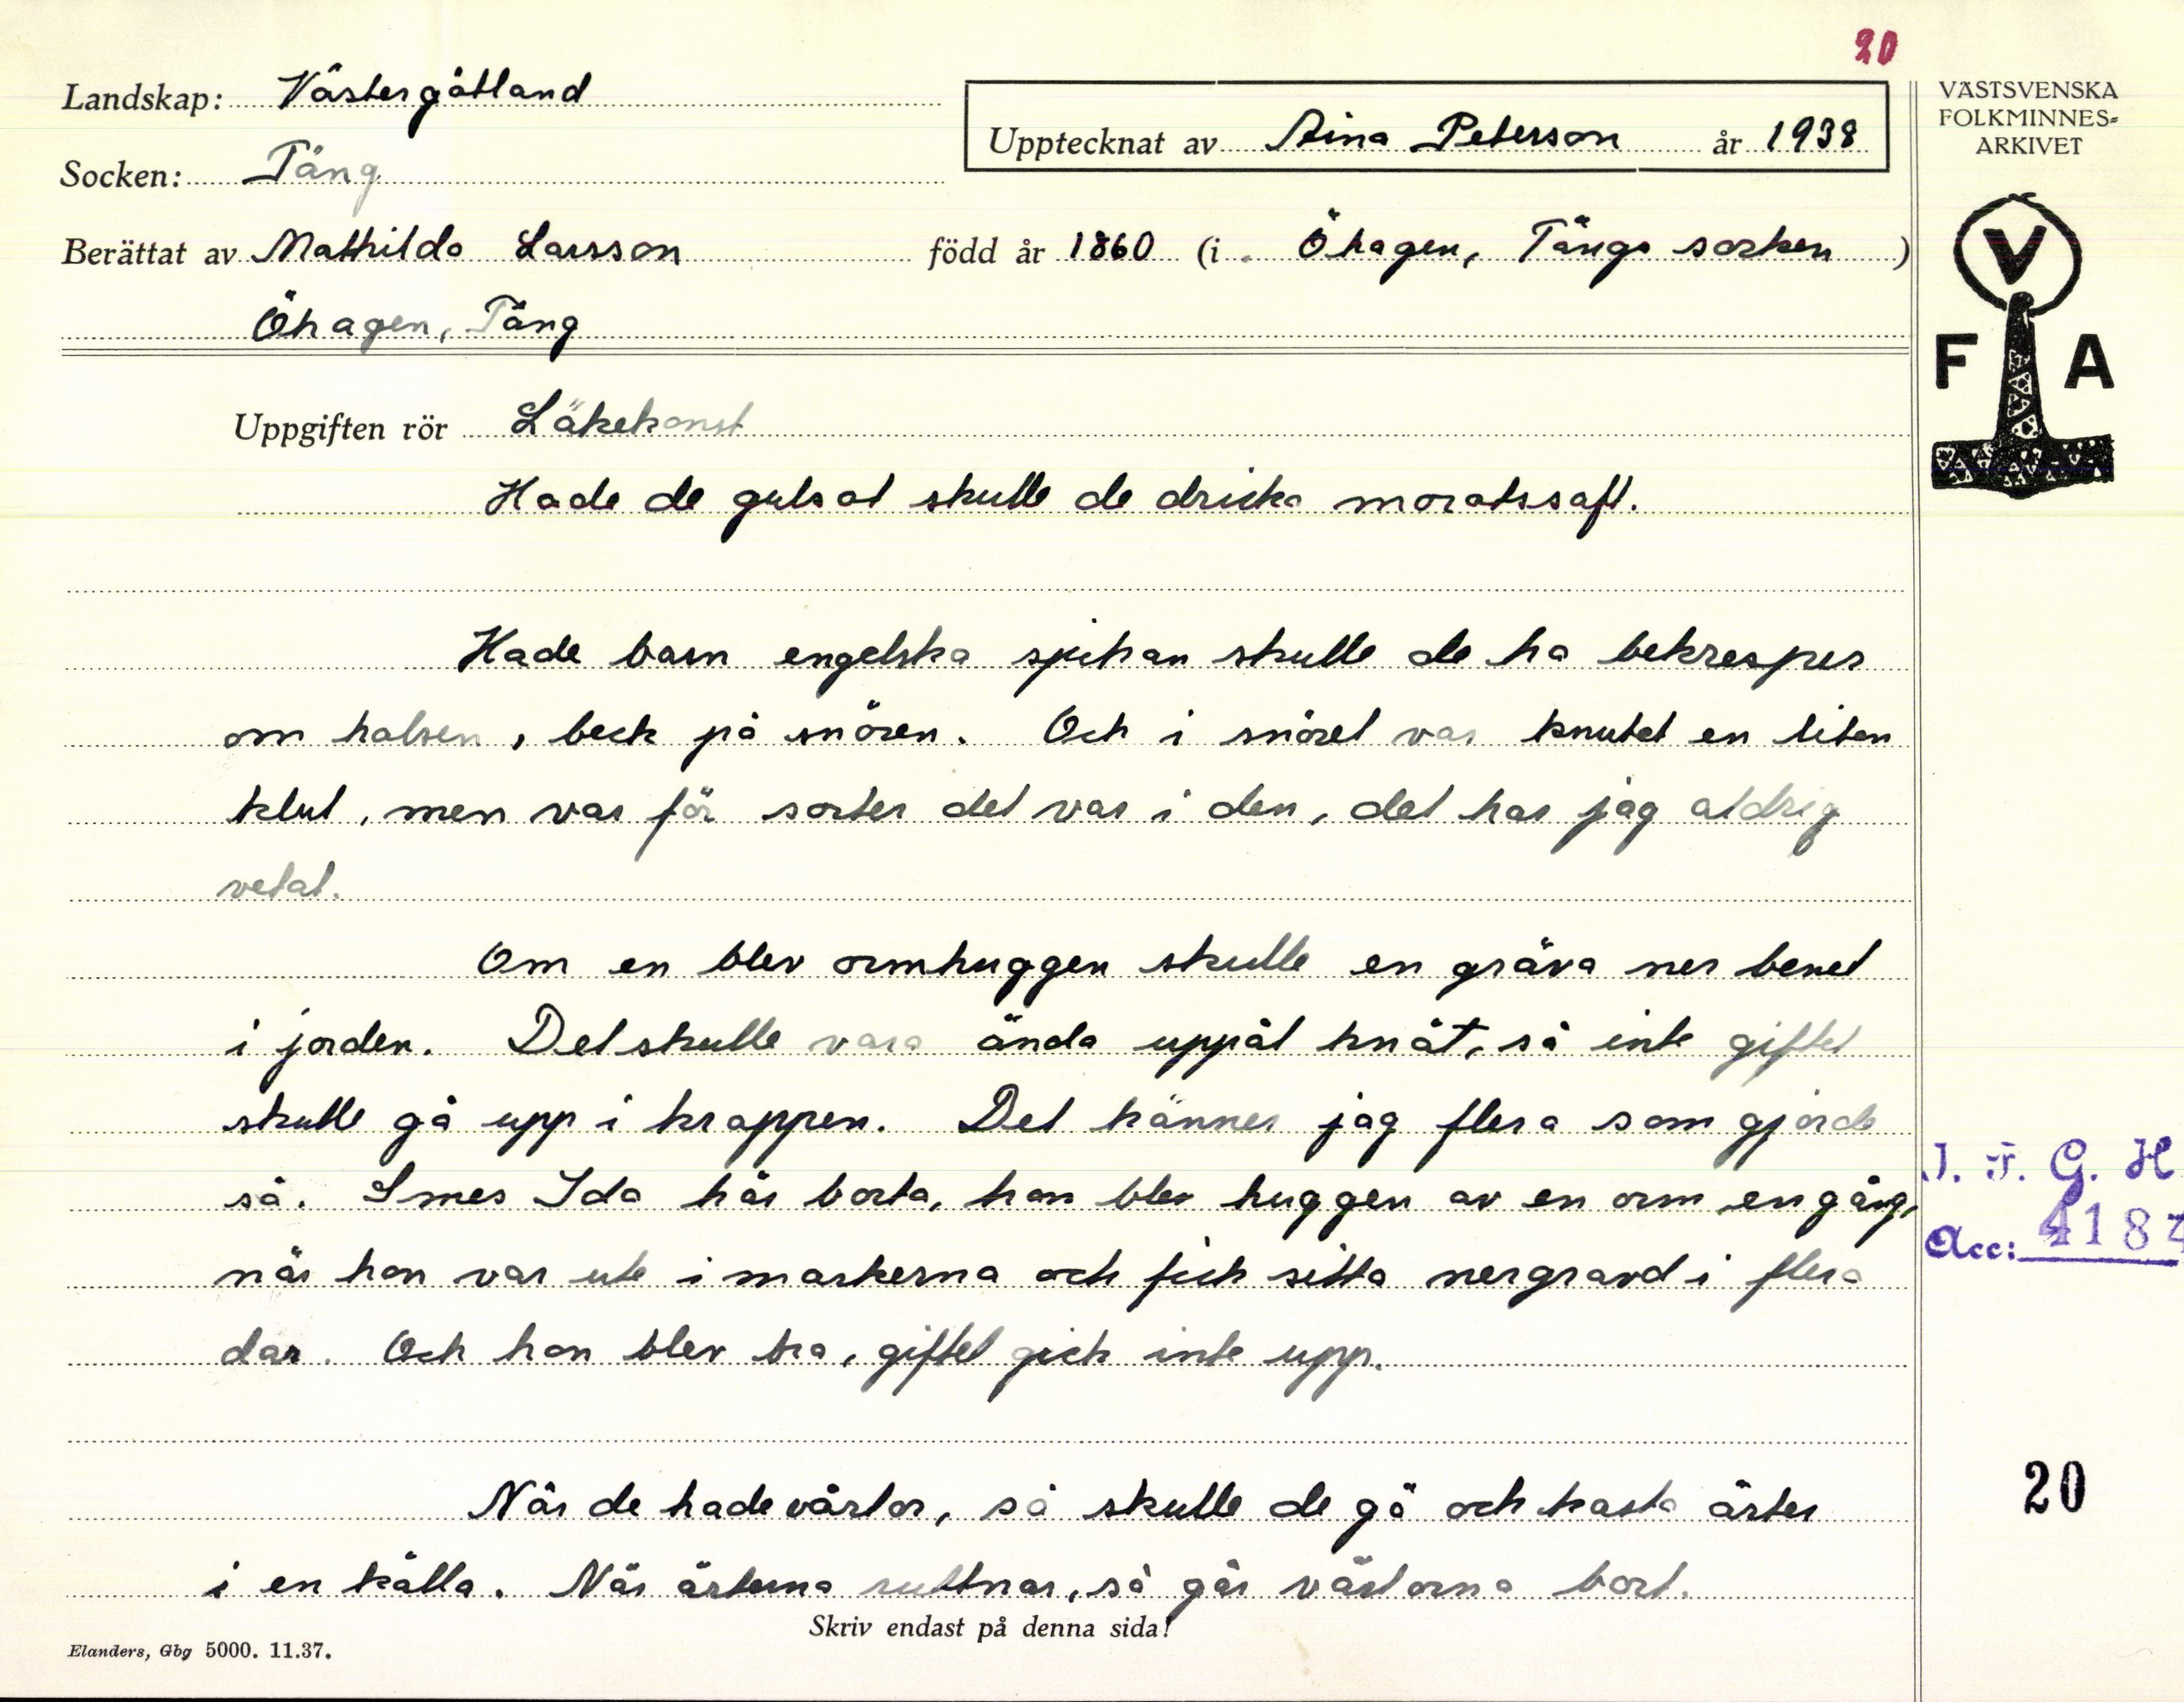 20
Landskap: Västergötland
VÄSTSVENSKA
FOLKMINNES=
ARKIVET
Upptecknat av Aina Peterson år 1938
Socken: Täng
Berättat av Mathilda Larsson född år 1860 (i Öhagen, Tängs socken )
Öhagen, Täng
V
F A
Uppgiften rör Läkekonst
Hade de gulsot skulle de dricka morotssaft.
Hade barn engelska sjukan skulle de ha bekresper
om halsen, beck på snören. Och i snöret var knutet en liten
klut, men var för sorter det var i den, det har jag aldrig
vetat.
Om en blev ormhuggen skulle en gräva ner benet
i jorden. Det skulle vara ända uppåt knät, så inte giftet
skulle gå upp i kroppen. Det känner jag flera som gjorde
så. Smes Ida här borta, hon blev huggen av en orm en gång,
när hon var ute i markerna och fick sitta nergravd i flera
dar. Och hon blev bra, giftet gick inte upp.
I. F. G. H
Acc: 4187
När de hade vårtor, så skulle de gå och kasta ärter
i en källa. När ärterna ruttnar, så går vårtorna bort.
20
Skriv endast på denna sida!
Elanders, Gbg 5000. 11.37.